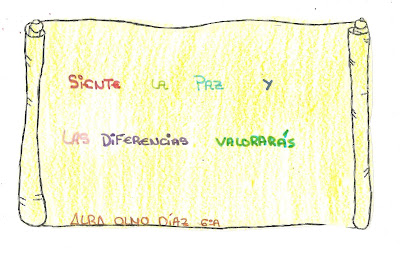 Siente la Paz y
las diferencias valorarás
ALBA OLMO DÍAZ 6ºA